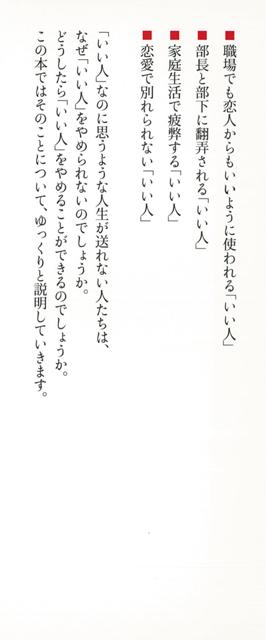 ■職場でも恋人からもいいように使われる「いい人」
■部長と部下に翻弄される「いい人」
■家庭生活で疲弊する「いい人」
■恋愛で別れられない「いい人」
「いい人」なのに思うような人生が送れない人たちは、
なぜ「いい人」をやめられないのでしょうか。
どうしたら「いい人」をやめることができるのでしょうか。
この本ではそのことについて、ゆっくりと説明していきます。